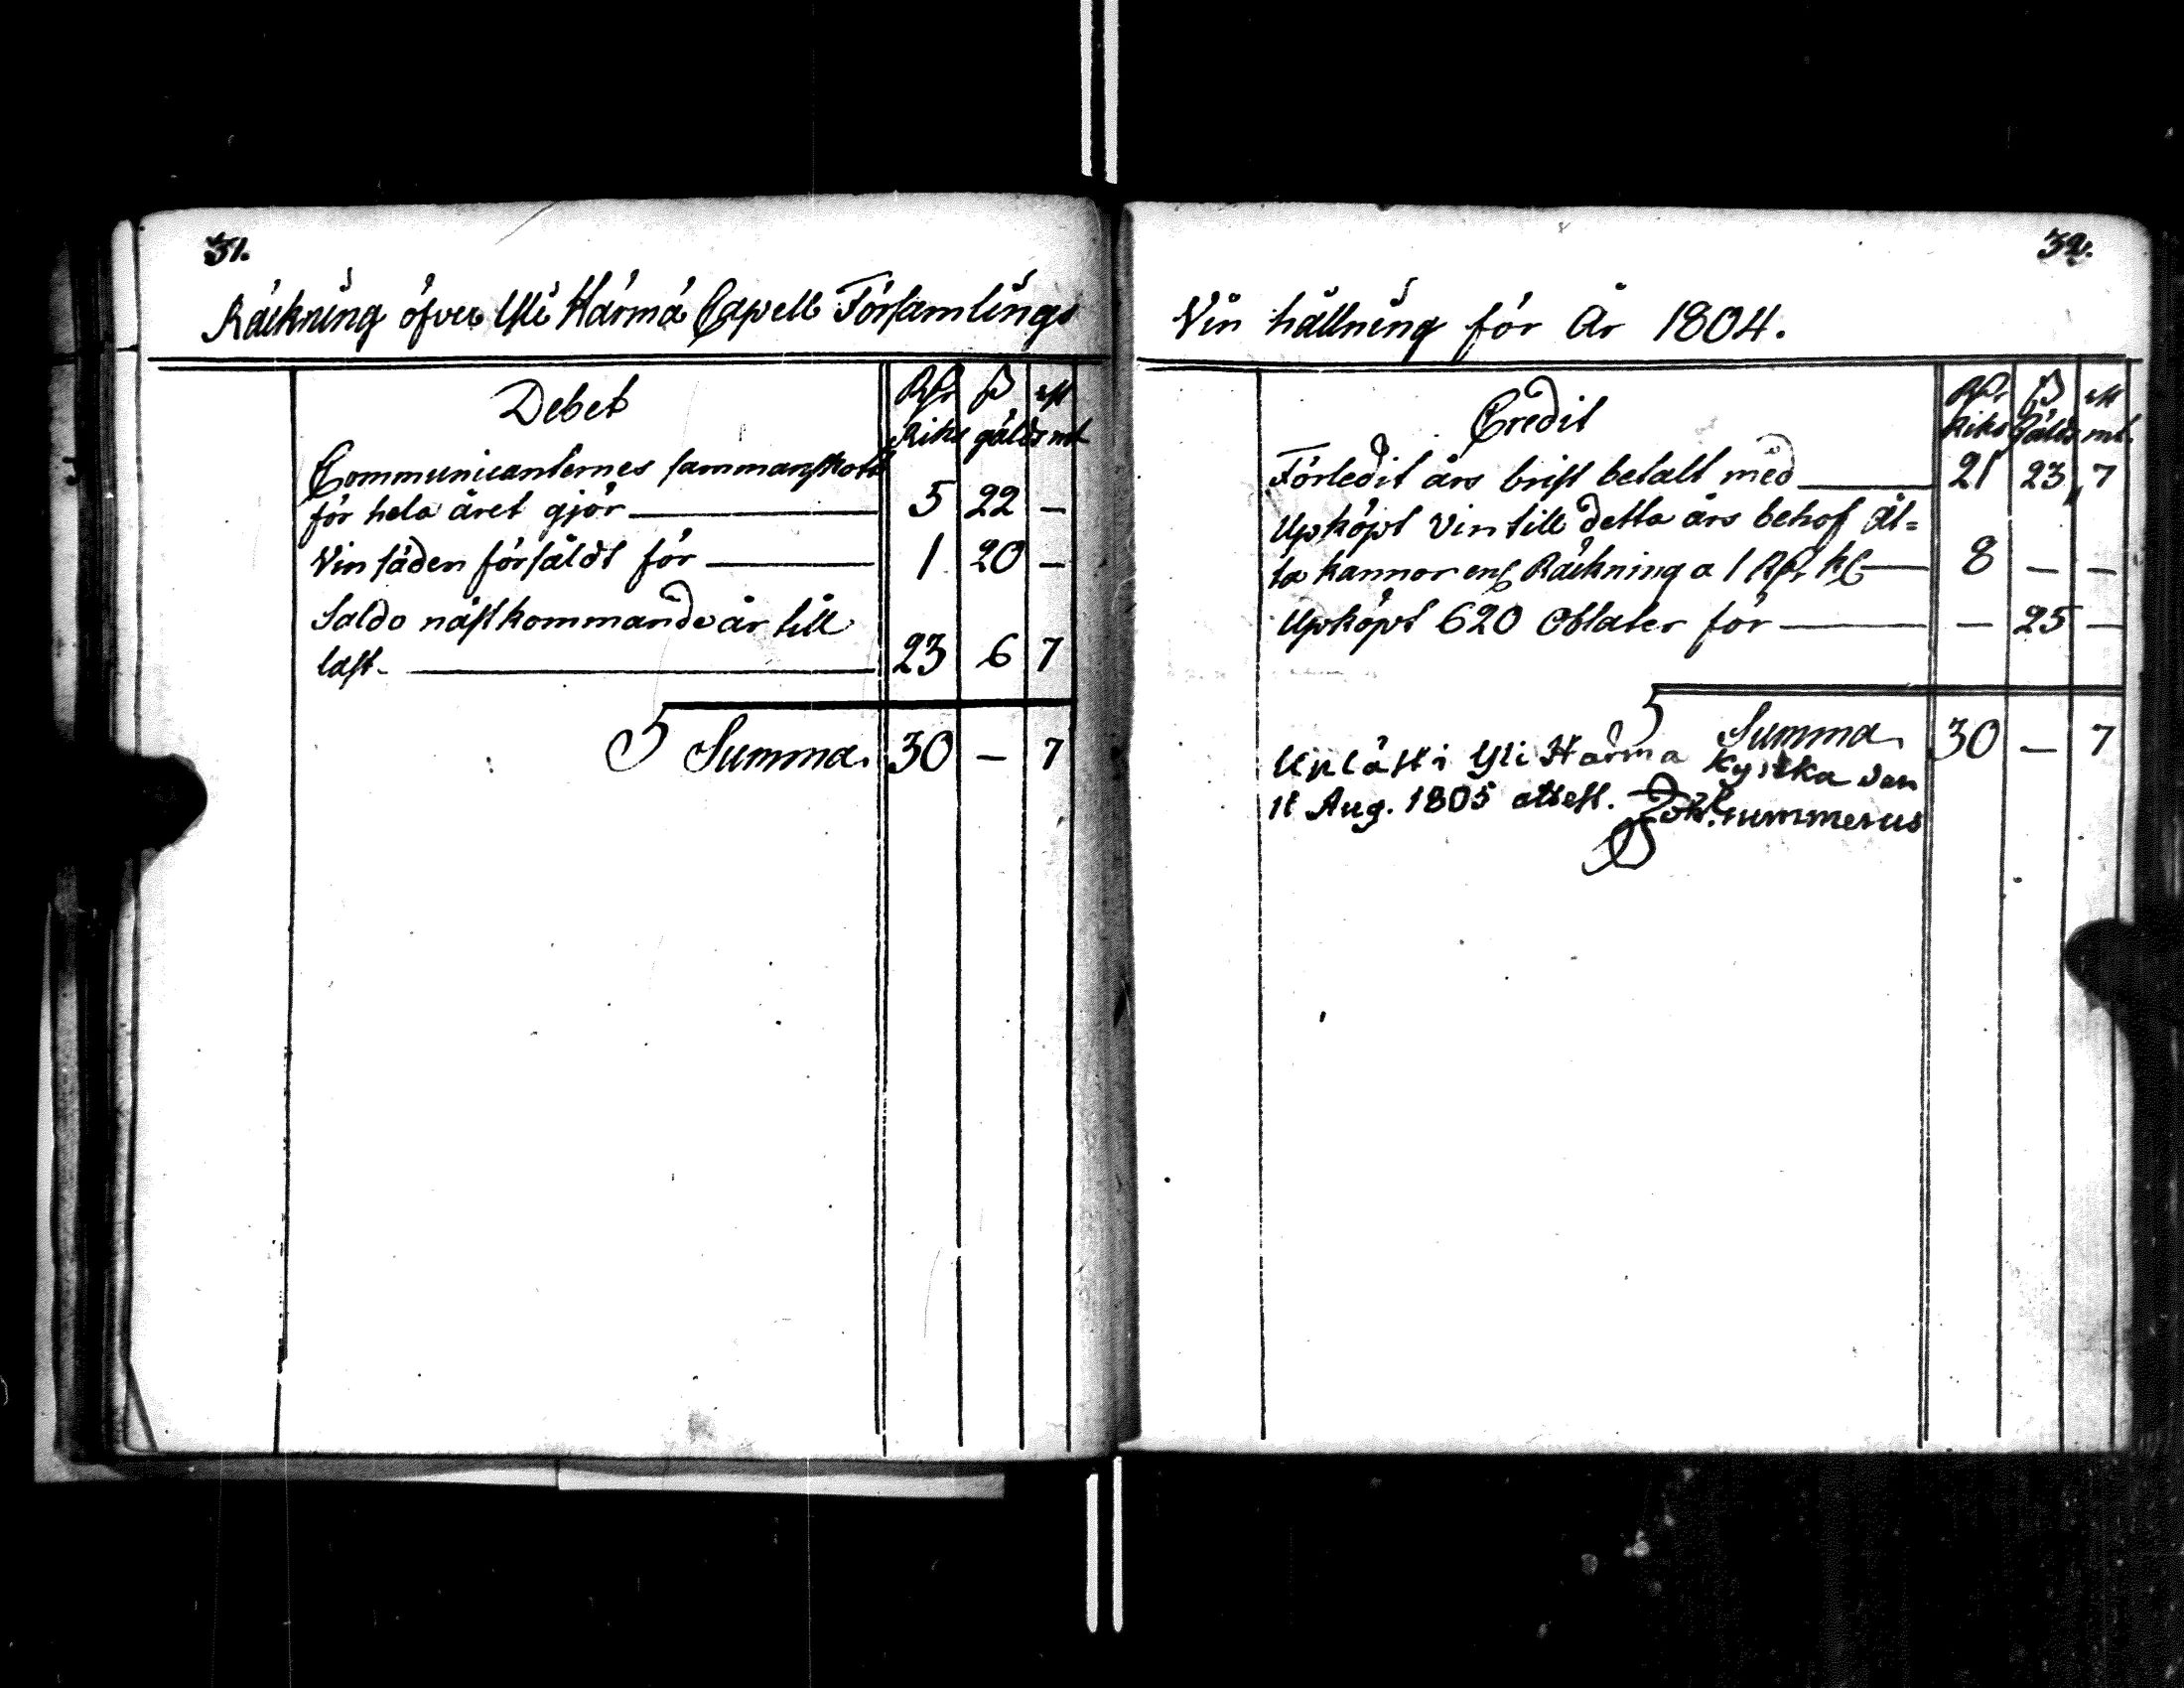 31.
Räkning öfver Yli Härmä Capell Församlings
Debet
Rdr ß rst
Riks gälds mt
Communicanternes sammanskott
för hela året gjör 5 22 —
Vin säden försåldt för 1 20 —
Saldo nästkommande år till
last. 23 6 7
Summa. 30 — 7
32.
Vin hållning för År 1804.
Credit
Rdr ß rst
Riks Gälds mt.
Förledit års brist betalt med 21 23 7
Upköpt Vin till detta års behof åt=
ta kannor enl Räkning a 1 Rdr kn 8 — —
Upköpt 620 Oblater för — 25 —
Summa 30 — 7
Upläst i Yli Härma Kyrka den
11 Aug. 1805 attest. Joh. Cummerus